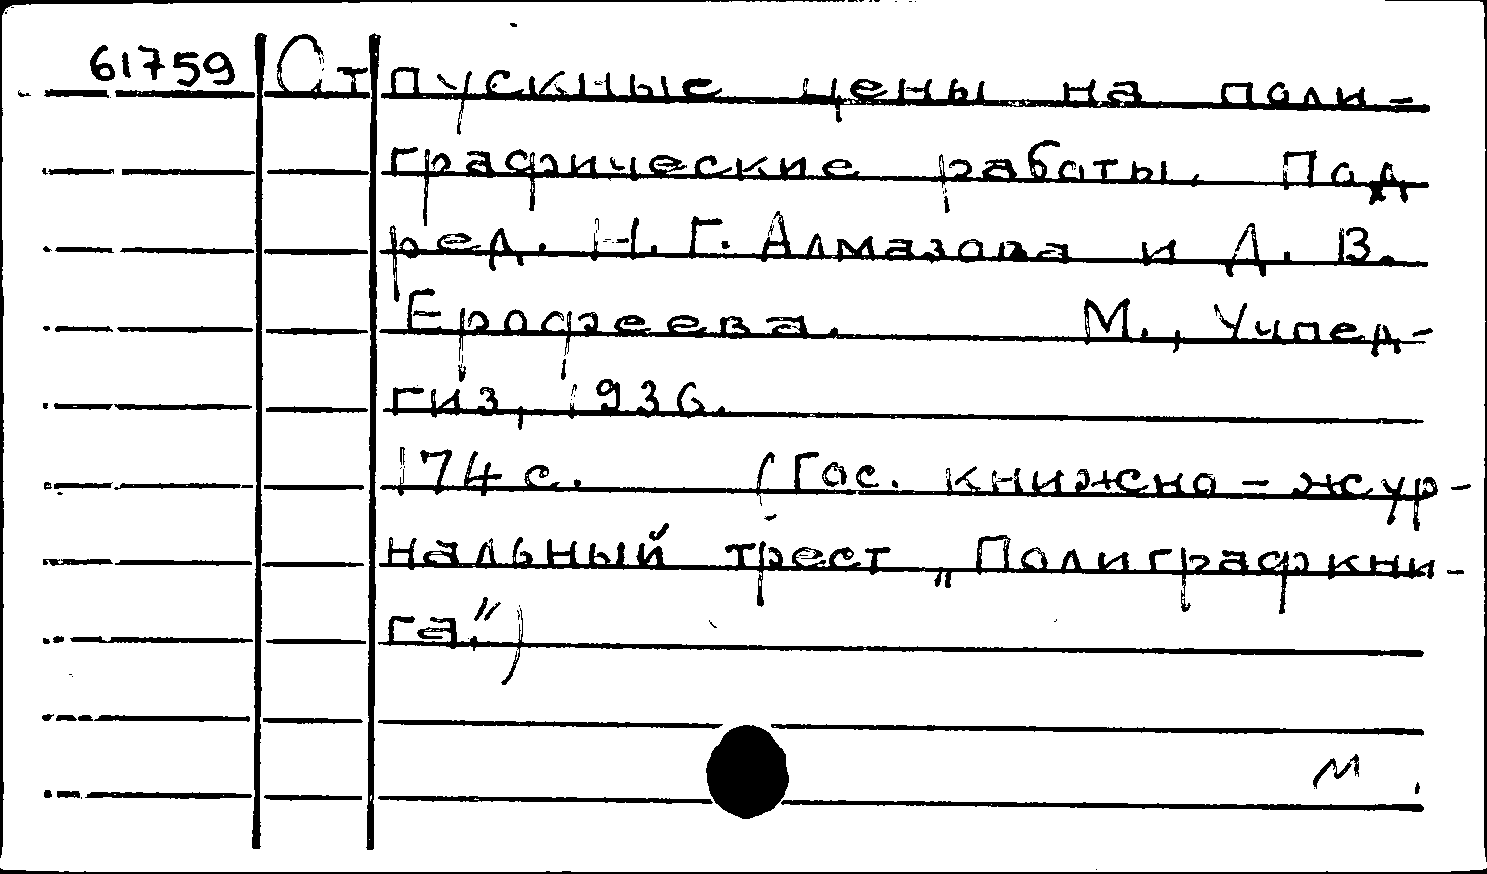 61759 Отпускные цены на поли-
графические работы. Под
ред. Н. Г. Алмазова и Д. В.
Ерофеева. М., Учпед-
гиз, 1936.
174 с. (Гос. книжно-жур-
нальный трест „Полиграфкни-
га.")
м